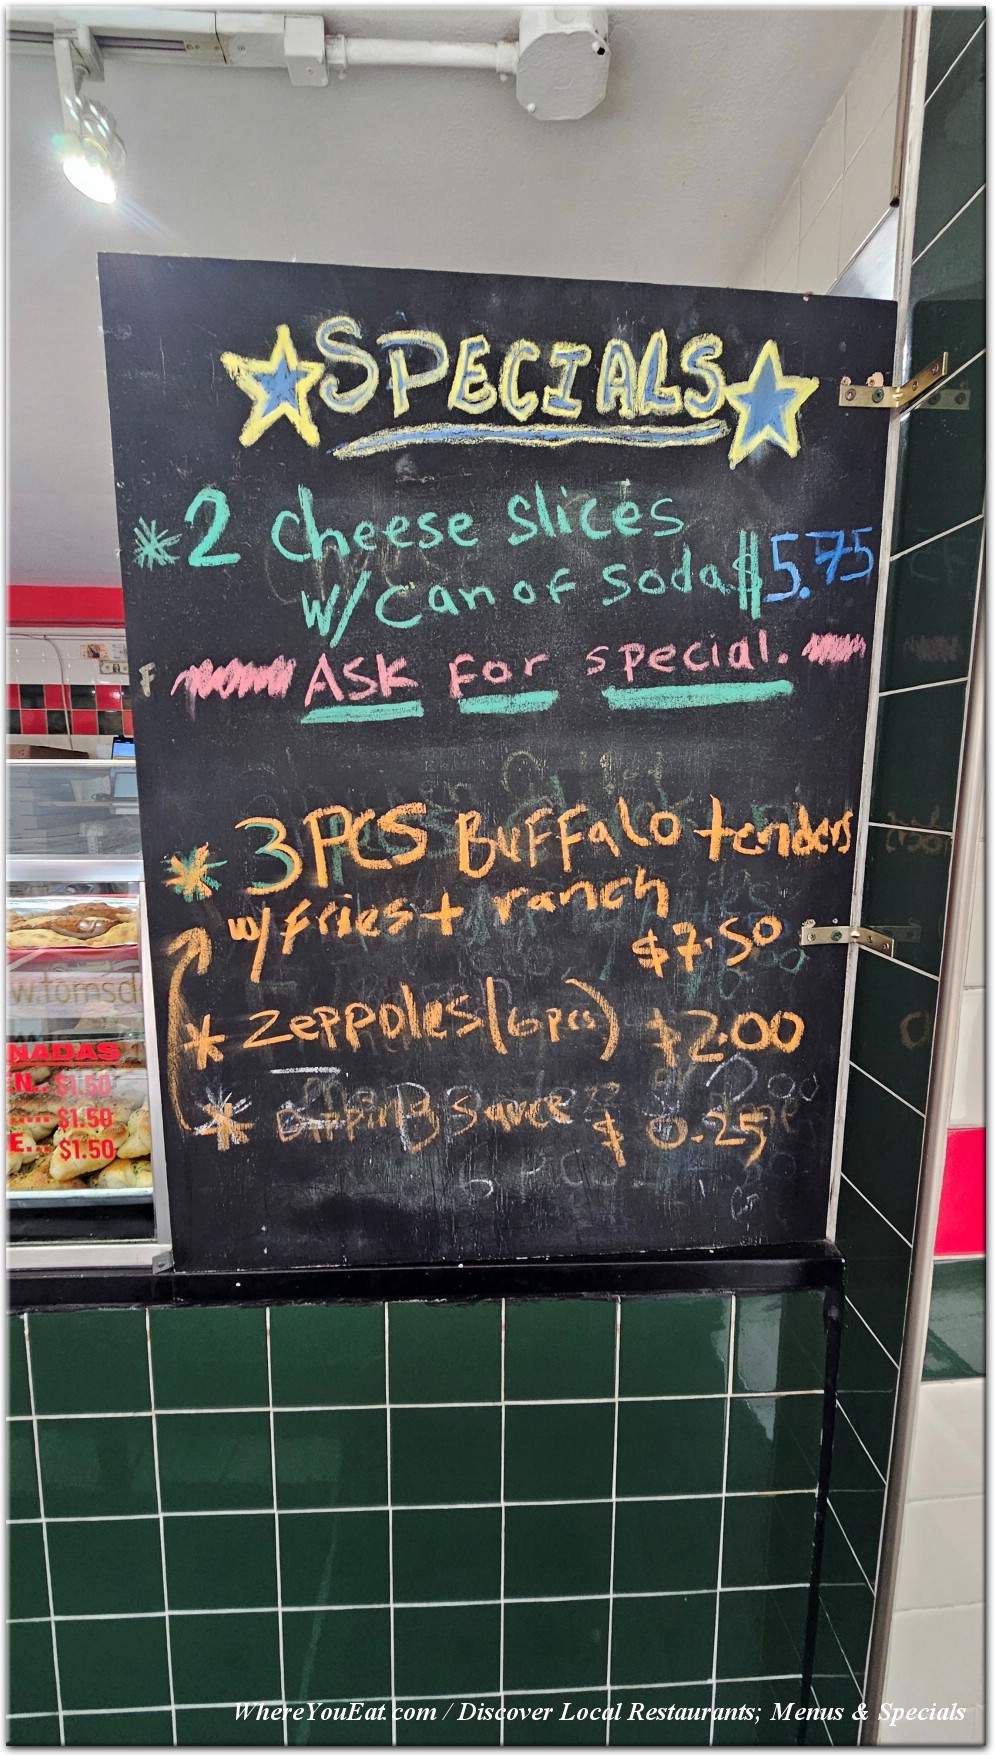 SPECIALS
* 2 cheese slices
w/ can of soda $5.75
ASK For special.
* 3 PCS BuFFalo tenders
w/ fries + ranch
$7.50
* zeppoles (6 pcs) $2.00
* Dipping sauce $ 0.25
w.tomsd
NADAS
EN.. $1.50
..... $1.50
E... $1.50
WhereYouEat.com / Discover Local Restaurants; Menus & Specials